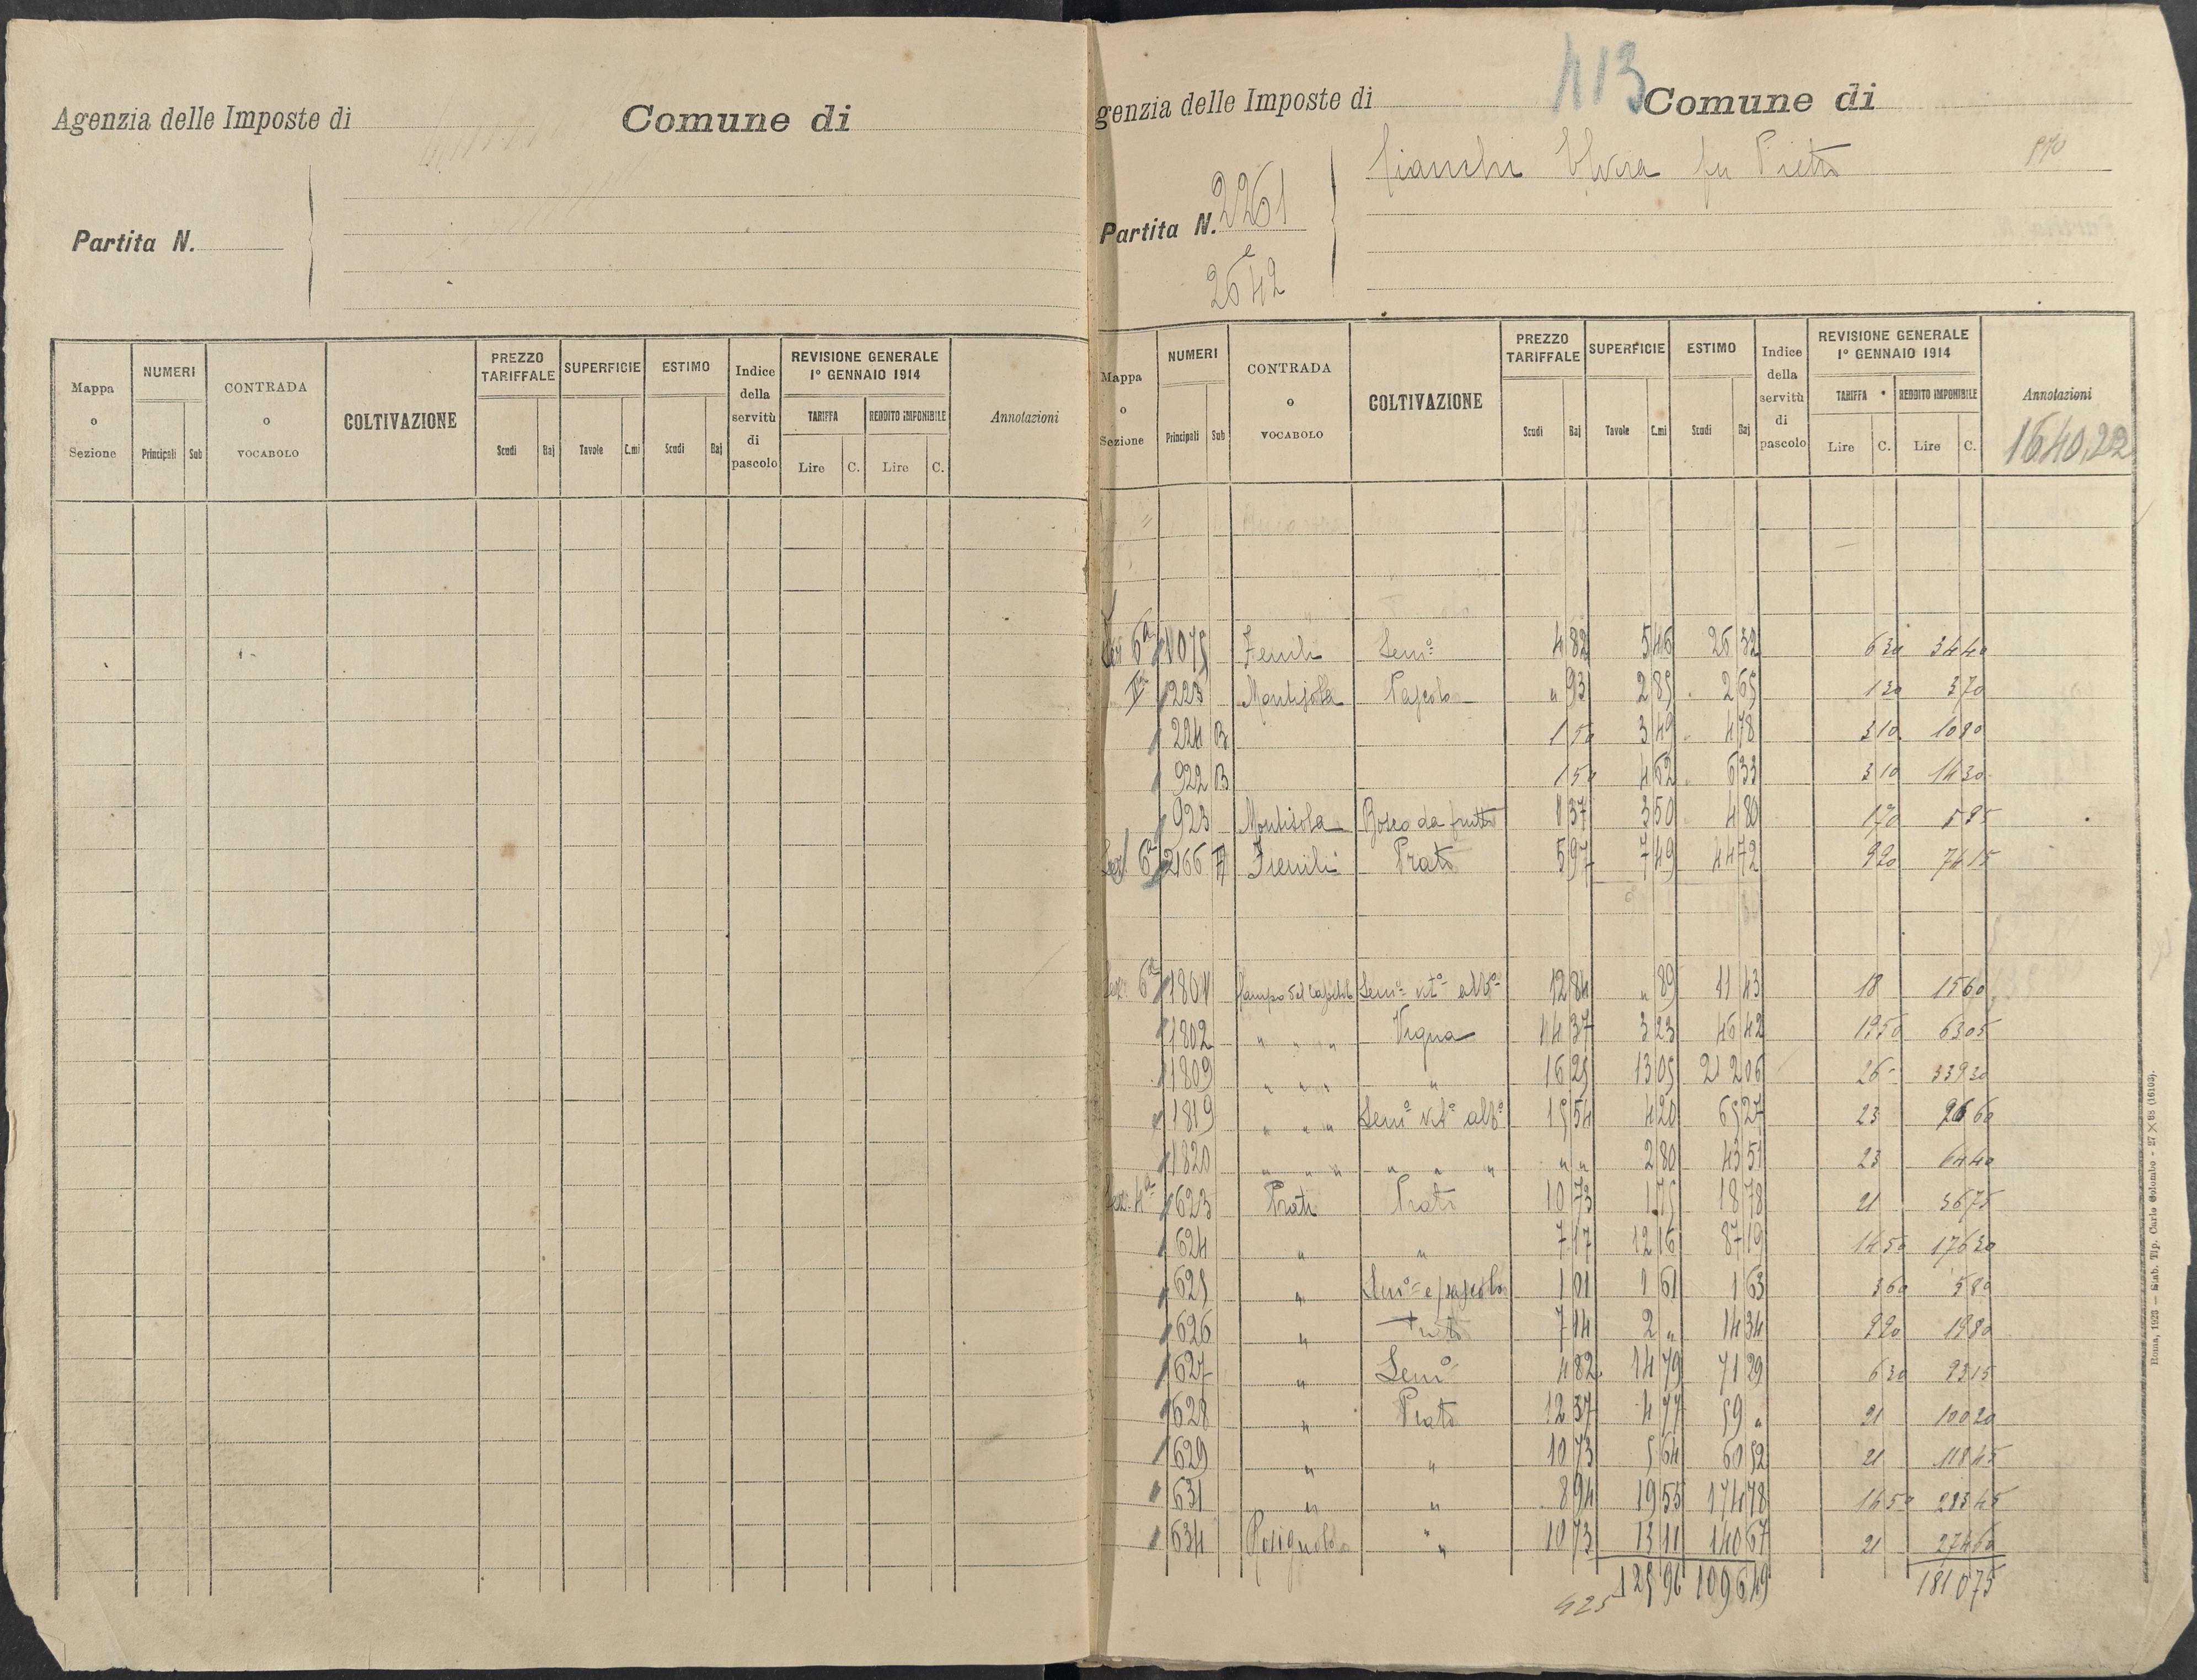 Agenzia delle Imposte di Comune di
Partita N.
Mappa o Sezione NUMERI Principali Sub CONTRADA o VOCABOLO COLTIVAZIONE PREZZO TARIFFALE Scudi Baj SUPERFICIE Tavole C.mi ESTIMO Scudi Baj Indice della servitù di pascolo REVISIONE GENERALE 1° GENNAIO 1914 TARIFFA Lire C. REDDITO IMPONIBILE Lire C. Annotazioni
413
genzia delle Imposte di Comune di
fu Pietro
Partita N. 2261
e
2642
Mappa o Sezione NUMERI Principali Sub CONTRADA o VOCABOLO COLTIVAZIONE PREZZO TARIFFALE Scudi Baj SUPERFICIE Tavole C.mi ESTIMO Scudi Baj Indice della servitù di pascolo REVISIONE GENERALE 1° GENNAIO 1914 TARIFFA Lire C. REDDITO IMPONIBILE Lire C. Annotazioni
1640,22
6ª 1075 Fenili Semº 4 82 5 46 26 32 6 30 34 40
223 Montisola Pascolo " 93 2 85 2 65 1 30 3 70
224 B 1 50 3 49 4 78 3 10 10 80
922 B 1 50 4 62 6 33 3 10 14 30
923 Montisola Bosco da frutto 1 37 3 50 4 80 1 70 5 95
6ª 2166 Fienili Prato 5 97 7 49 44 72 9 20 74 15
6ª 1801 Semº vitº albº 12 84 " 89 11 43 18 15 60
1802 " " " Vigna 14 37 3 23 46 42 19 50 63 05
1809 " " " " 16 25 13 05 212 06 26 339 30
1819 " " " Semº vitº albº 15 54 4 20 65 27 23 96 60
1820 " " " " " " " " 2 80 43 51 23 64 40
Sez. 4ª 623 Prati Prato 10 73 1 75 18 78 21 36 75
624 " " 7 17 12 16 87 19 14 50 176 30
625 " Semº e pascolo 1 01 1 61 1 63 3 60 5 80
626 " 7 14 2 " 14 34 9 90 19 80
627 " Semº 4 82 14 79 71 29 6 30 93 15
628 " Prato 12 37 4 77 59 " 21 100 20
629 " " 10 73 5 64 60 52 21 118 45
631 " " 8 94 19 55 174 78 14 50 283 45
634 " 10 73 13 11 140 67 21 274 60
125 96 1096 49 1810 75
425
Roma, 1923 — Stab. Tip. Carlo Colombo - 27 × 68 (16103).